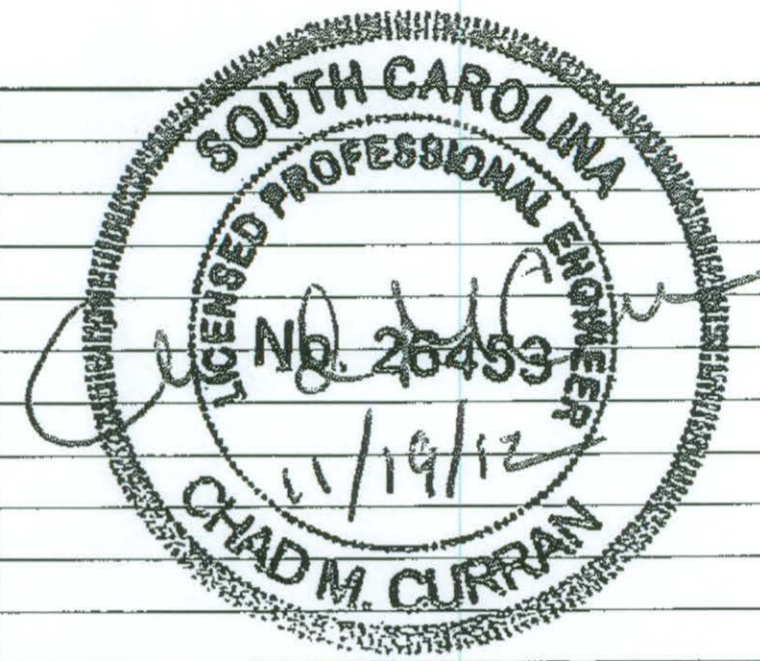 SOUTH CAROLINA
LICENSED PROFESSIONAL ENGINEER
No. 26453
11/19/12
CHAD M. CURRAN